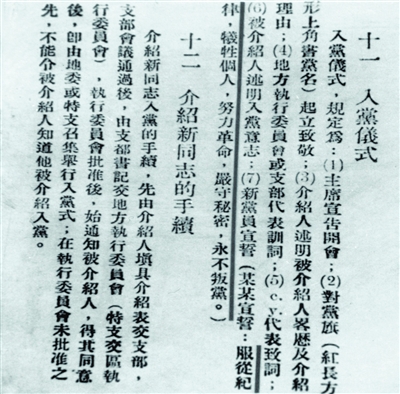 十一　入黨儀式
入黨儀式，規定爲：(1)主席宣告開會；(2)對黨旗（紅長方
形上角書黨名）起立致敬；(3)介紹人述明被介紹人畧歷及介紹
理由；(4)地方執行委員會或支部代表訓詞；(5)c.y.代表致詞；
(6)被介紹人述明入黨意志；(7)新黨員宣誓（某某宣誓：服從紀
律，犧牲個人，努力革命，嚴守秘密，永不叛黨。）
十二　介紹新同志的手續
介紹新同志入黨的手續，先由介紹人填具介紹表交支部，
支部會議通過後，由支部書記交地方執行委員會（特支交區執
行委員會），執行委員會批准後，始通知被介紹人，得其同意
後，卽由地委或特支召集舉行入黨式；在執行委員會未批准之
先，不能令被介紹人知道他被介紹入黨。